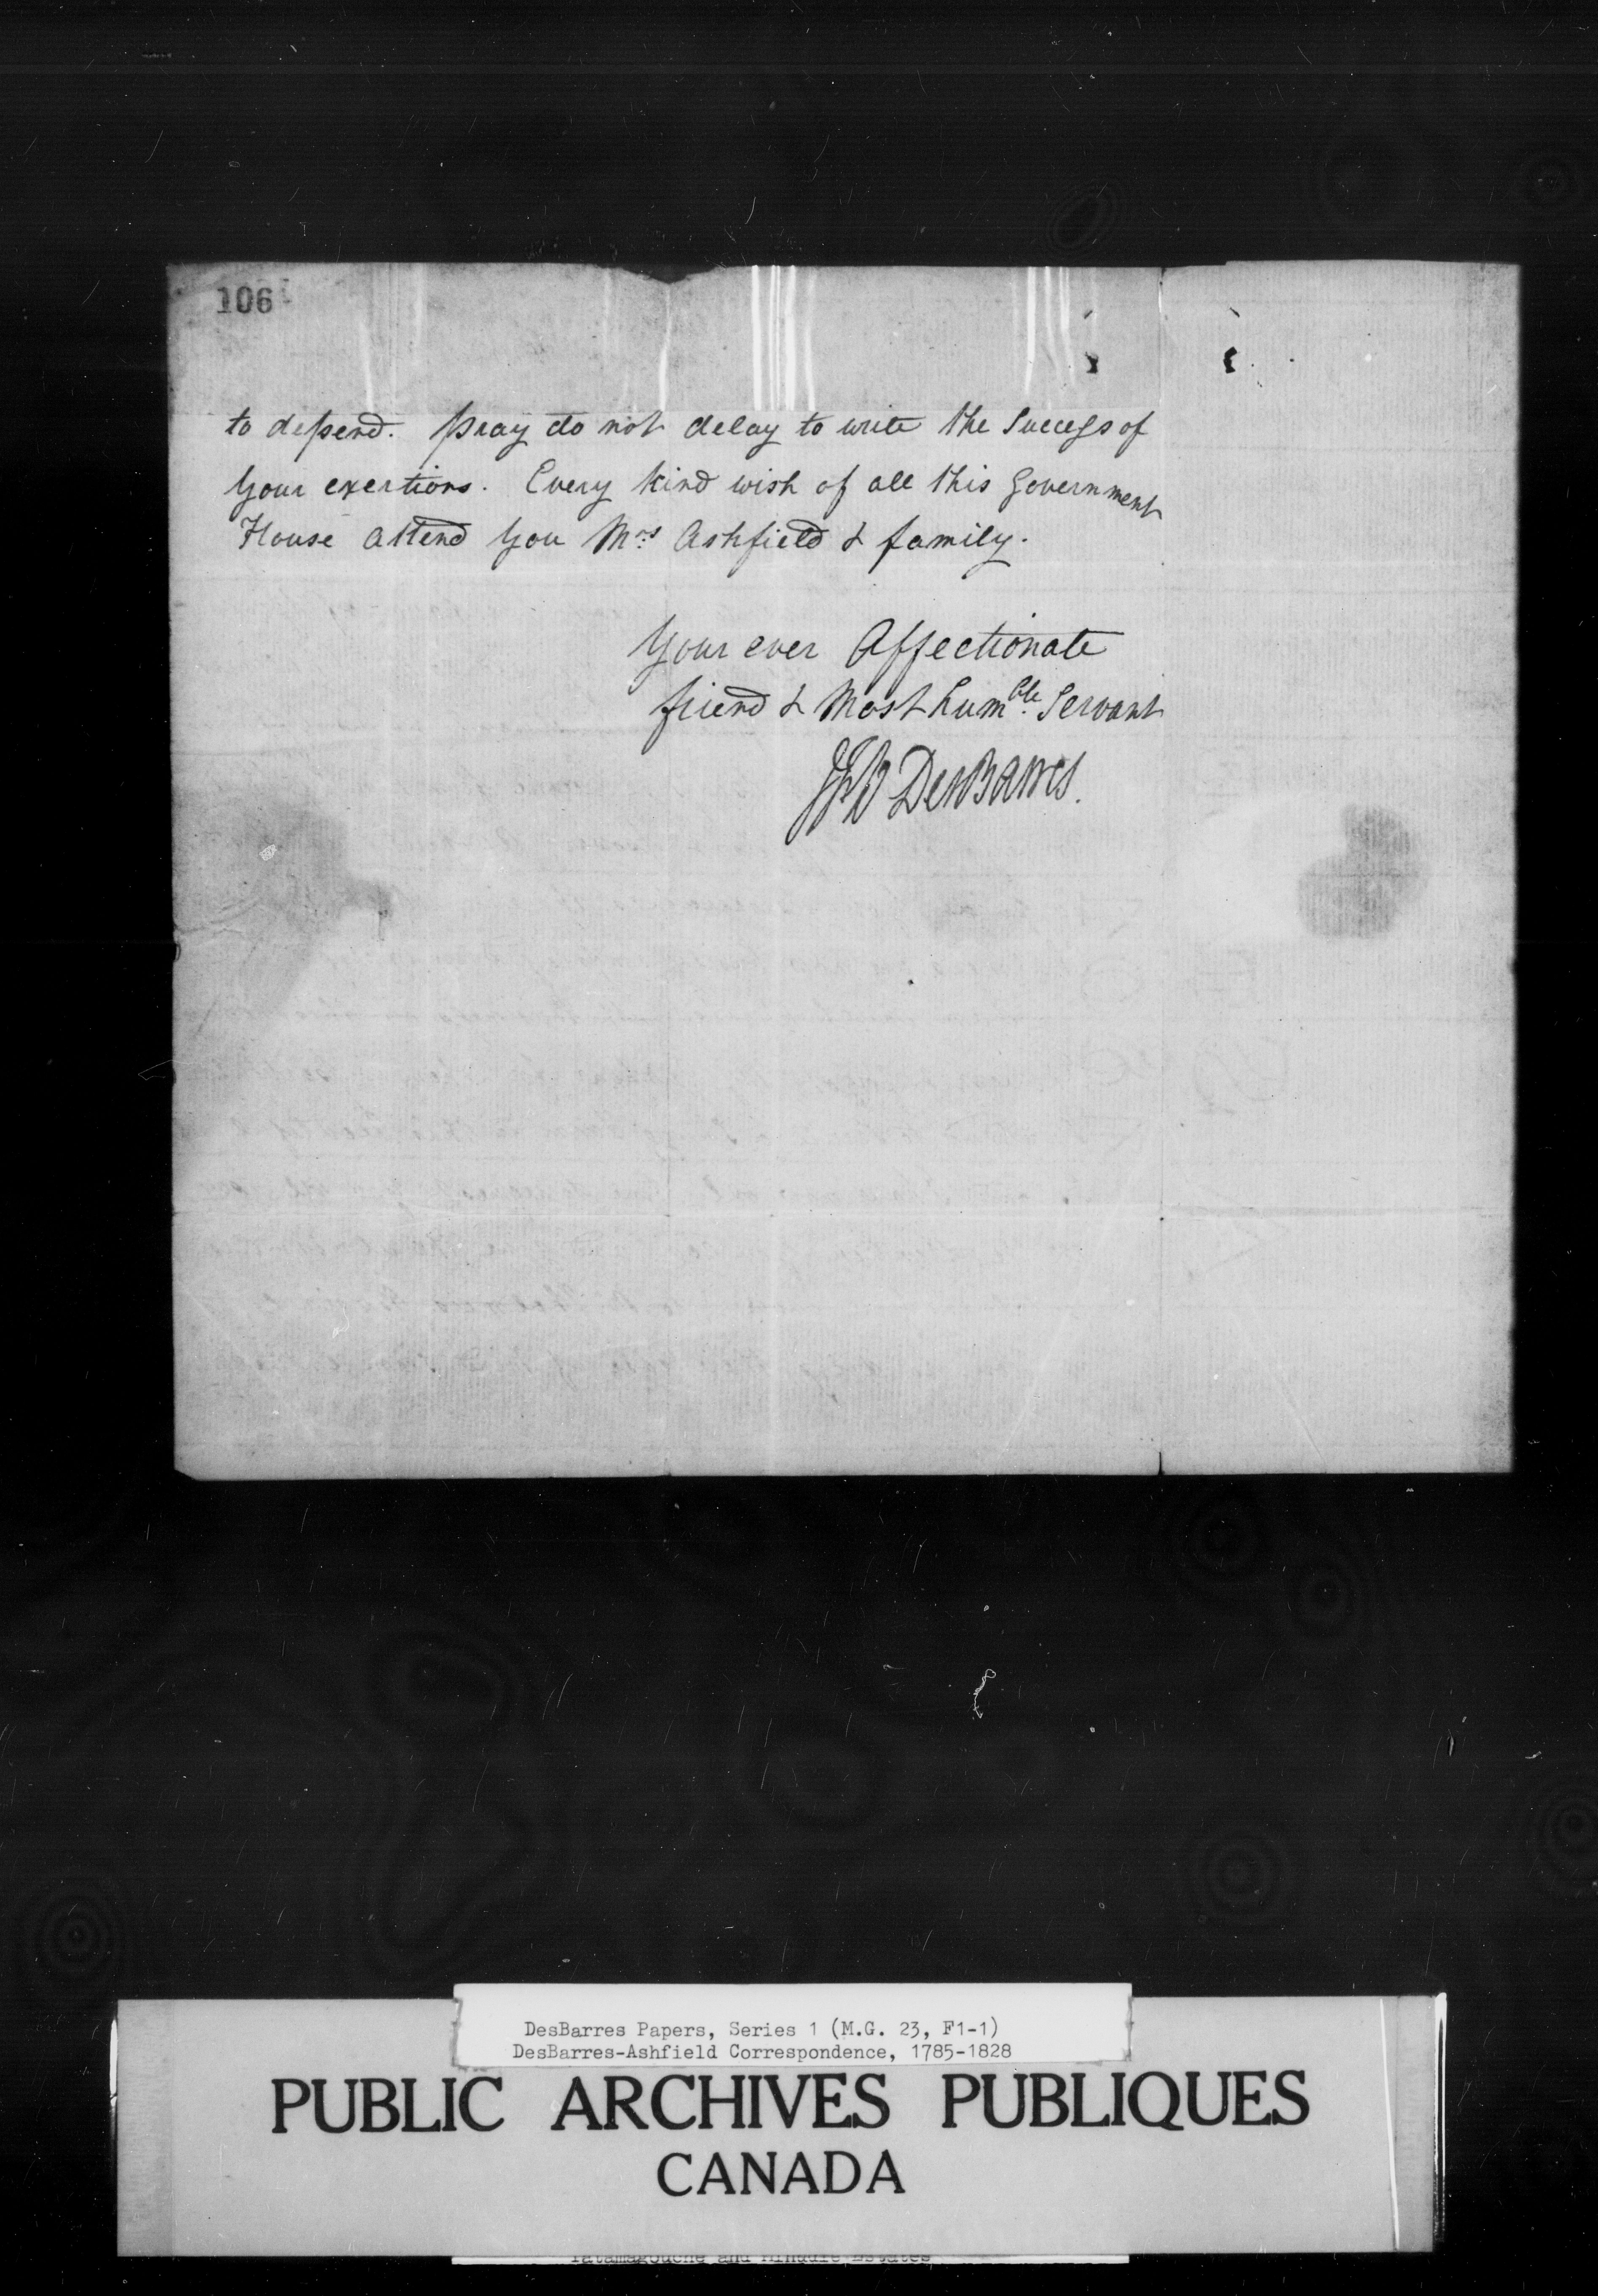 106
to depend. pray do not delay to write the Success of
your exertions. Every kind wish of all this Government
House attend you Mrs Ashfield & family.
Your ever Affectionate
friend & Most humble Servant
JFW DesBarres.
DesBarres Papers, Series 1 (M.G. 23, F1-1)
DesBarres-Ashfield Correspondence, 1785-1828
PUBLIC ARCHIVES PUBLIQUES
CANADA
Tatamagouche and Minudie Estates